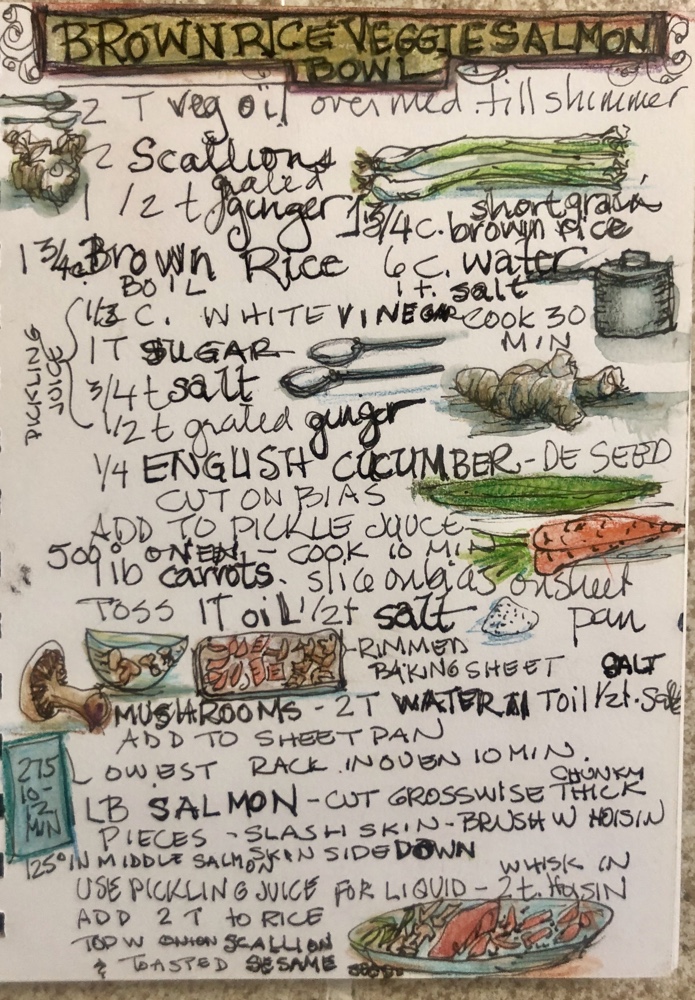 BROWN RICE VEGGIE SALMON
BOWL
2 T veg oil over med. till shimmer
2 Scallions
grated
1 1/2 t ginger
short grain
1 3/4 c. brown rice
1 3/4 c. Brown Rice 6 c. water
BOIL 1 t. salt
1/3 C. WHITE VINEGAR COOK 30
MIN
PICKLING
JUICE
1T SUGAR
3/4 t salt
1/2 t grated ginger
1/4 ENGLISH CUCUMBER - DE SEED
CUT ON BIAS
ADD TO PICKLE JUICE
500° OVEN - COOK 10 MIN
1 lb carrots. slice on bias on sheet
pan
TOSS 1T oil 1/2 t salt
RIMMED
BAKING SHEET
SALT
MUSHROOMS - 2 T WATER 1 T oil 1/2 t. Salt
ADD TO SHEET PAN
LOWEST RACK IN OVEN 10 MIN.
275
10-
12
MIN
CHUNKY
LB SALMON - CUT CROSSWISE THICK
PIECES - SLASH SKIN - BRUSH W HOISIN
SKIN SIDE DOWN
125° IN MIDDLE SALMON
WHISK IN
USE PICKLING JUICE FOR LIQUID - 2 t. HOISIN
ADD 2 T to RICE
TOP W ONION SCALLION
& TOASTED SESAME